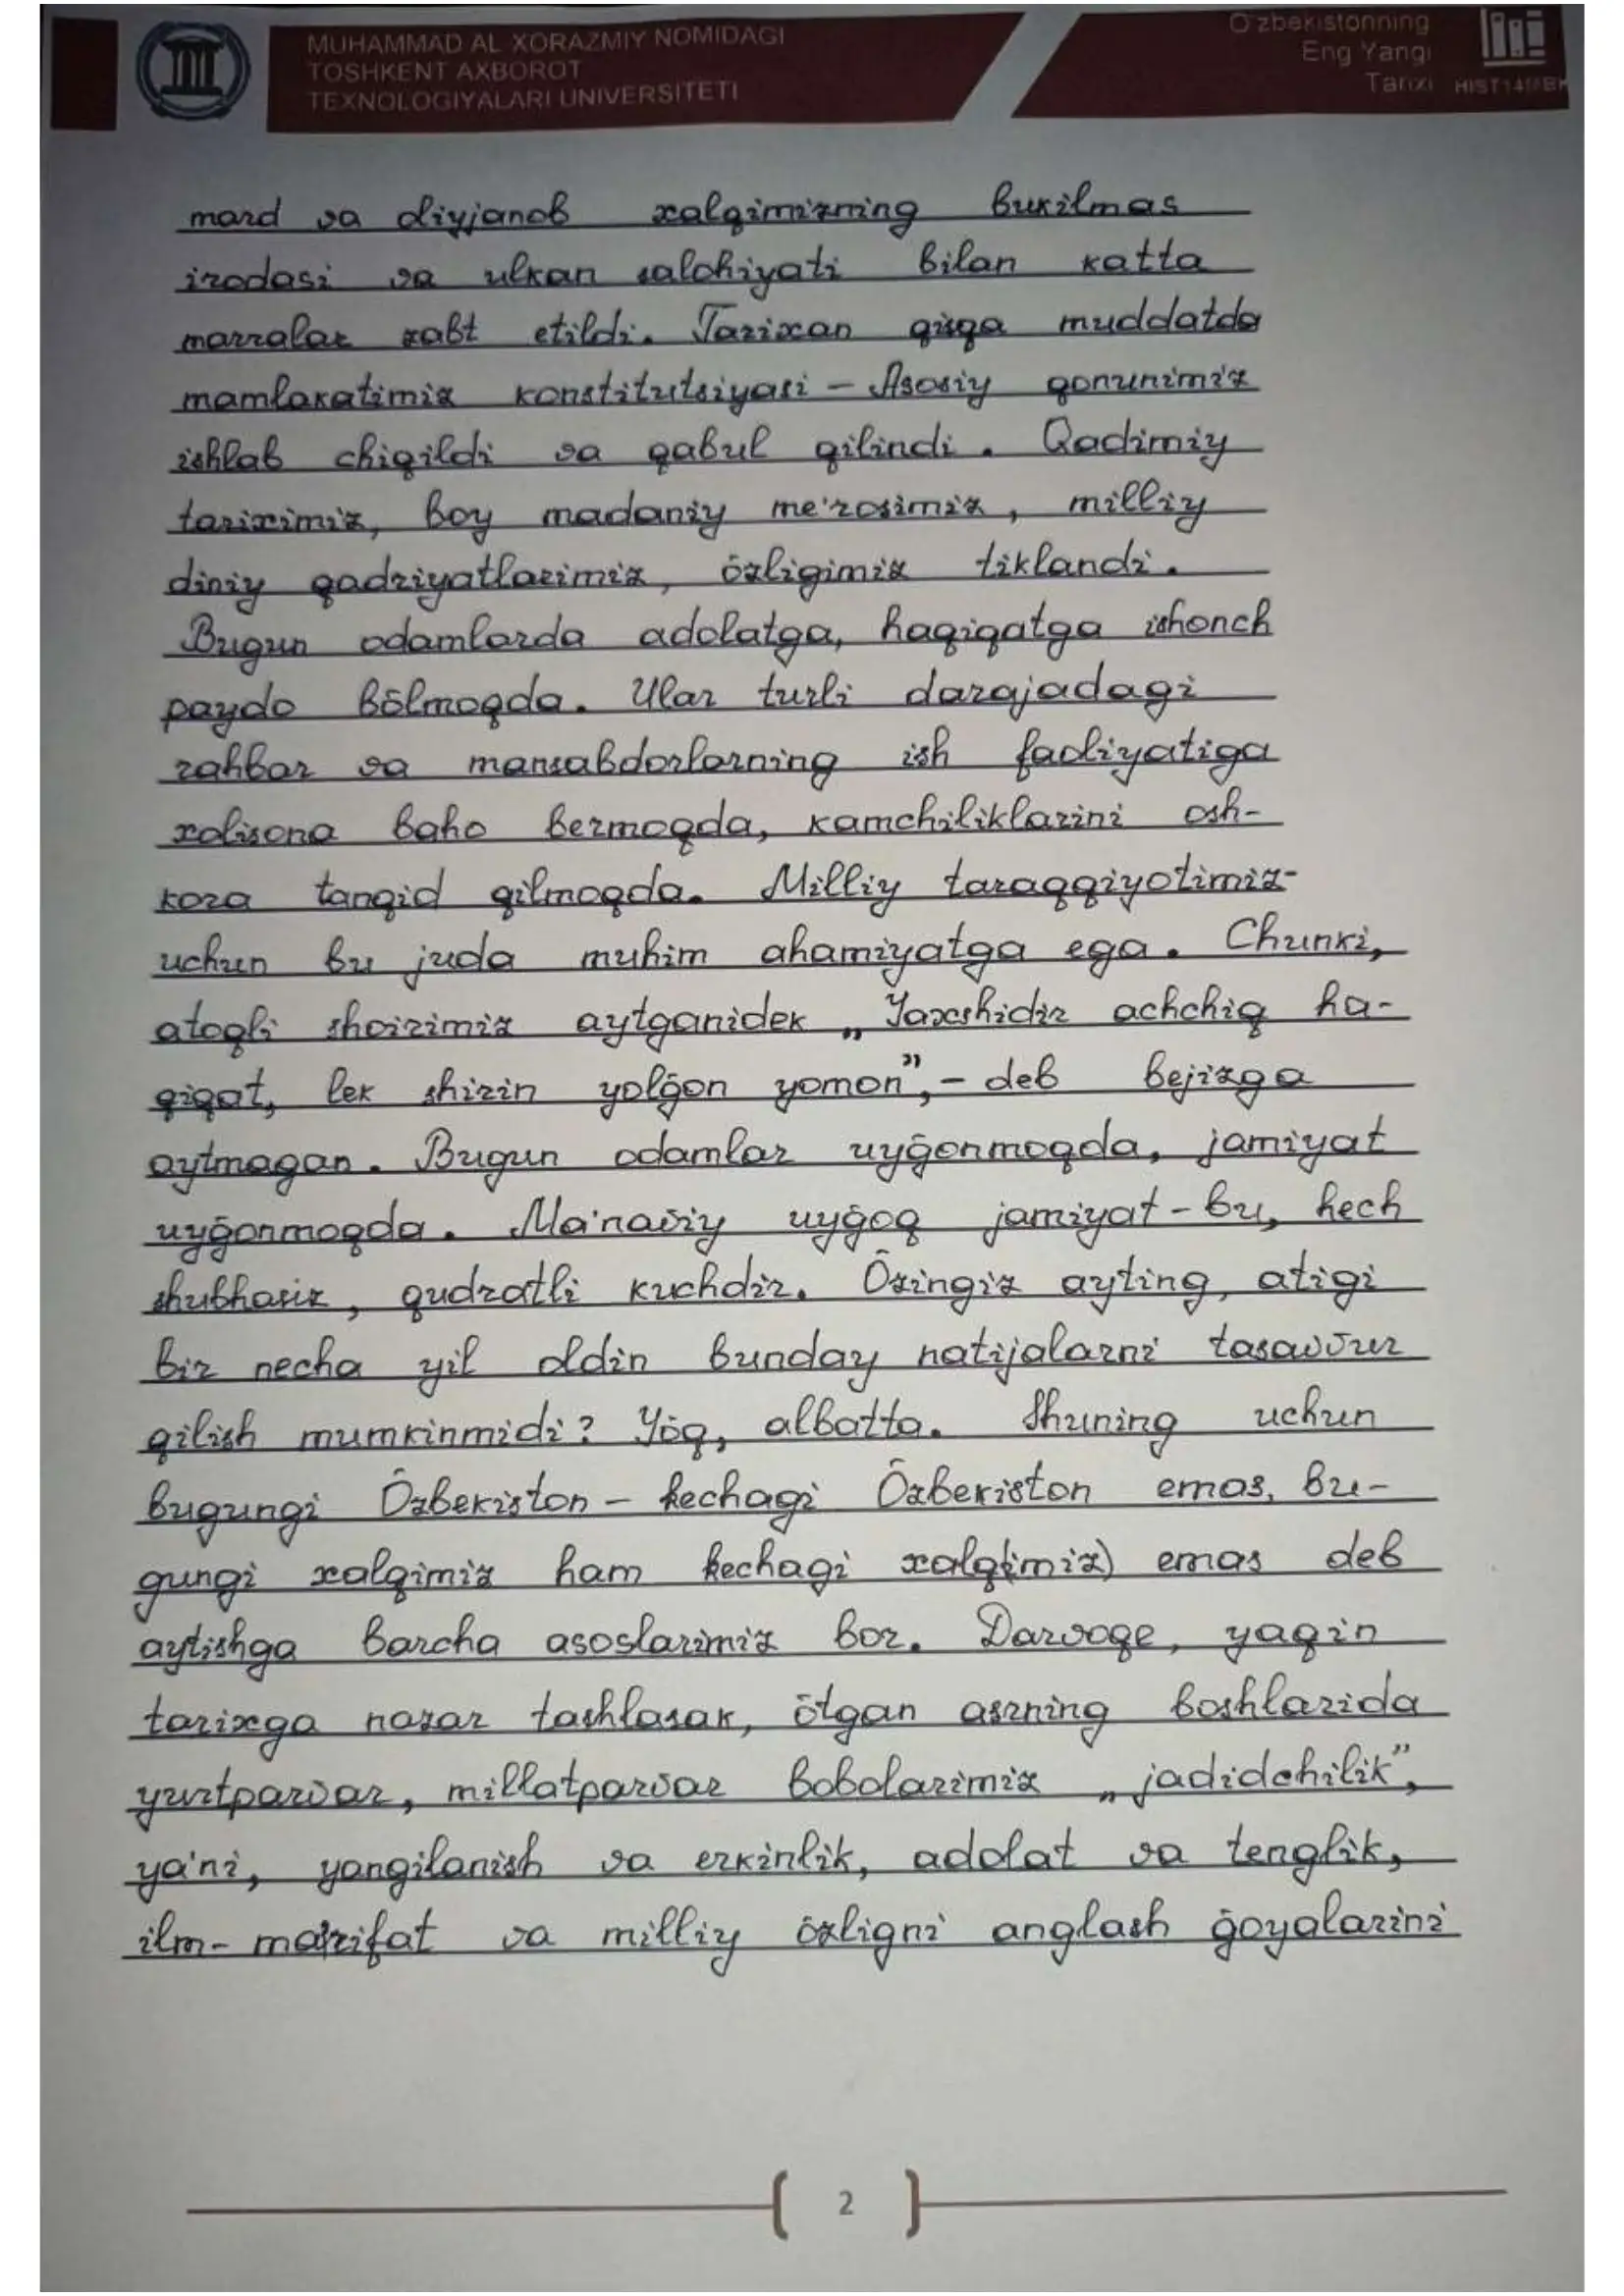 MUHAMMAD AL XORAZMIY NOMIDAGI
TOSHKENT AXBOROT
TEXNOLOGIYALARI UNIVERSITETI
O'zbekistonning
Eng Yangi
Tarixi
mard va oliyjanob xalqimizning bukilmas
irodasi va ulkan salohiyati bilan katta
marralar zabt etildi. Tarixan qisqa muddatda
mamlakatimiz konstitutsiyasi – Asosiy qonunimiz
ishlab chiqildi va qabul qilindi. Qadimiy
tariximiz, boy madaniy me'rosimiz, milliy
diniy qadriyatlarimiz, ōzligimiz tiklandi.
Bugun odamlarda adolatga, haqiqatga ishonch
paydo bōlmoqda. Ular turli darajadagi
rahbar va mansabdorlarning ish faoliyatiga
xolisona baho bermoqda, kamchiliklarini osh-
kora tanqid qilmoqda. Milliy taraqqiyotimiz-
uchun bu juda muhim ahamiyatga ega. Chunki,
atoqli shoirimiz aytganidek „Yaxshidir achchiq ha-
qiqat, lek shirin yolḡon yomon”,– deb bejizga
aytmagan. Bugun odamlar uyḡonmoqda, jamiyat
uyḡonmoqda. Ma'naviy uyḡoq jamiyat – bu, hech
shubhasiz, qudratli kuchdir. Ōzingiz ayting, atigi
bir necha yil oldin bunday natijalarni tasavvur
qilish mumkinmidi? Yōq, albatta. Shuning uchun
bugungi Ōzbekiston – kechagi Ōzbekiston emas, bu-
gungi xalqimiz ham kechagi xalqimiz) emas deb
aytishga barcha asoslarimiz bor. Darvoqe, yaqin
tarixga nazar tashlasak, ōtgan asrning boshlarida
yurtparvar, millatparvar bobolarimiz „jadidchilik”,
ya'ni, yangilanish va erkinlik, adolat va tenglik,
ilm-marifat va milliy ōzligni anglash ḡoyalarini
2